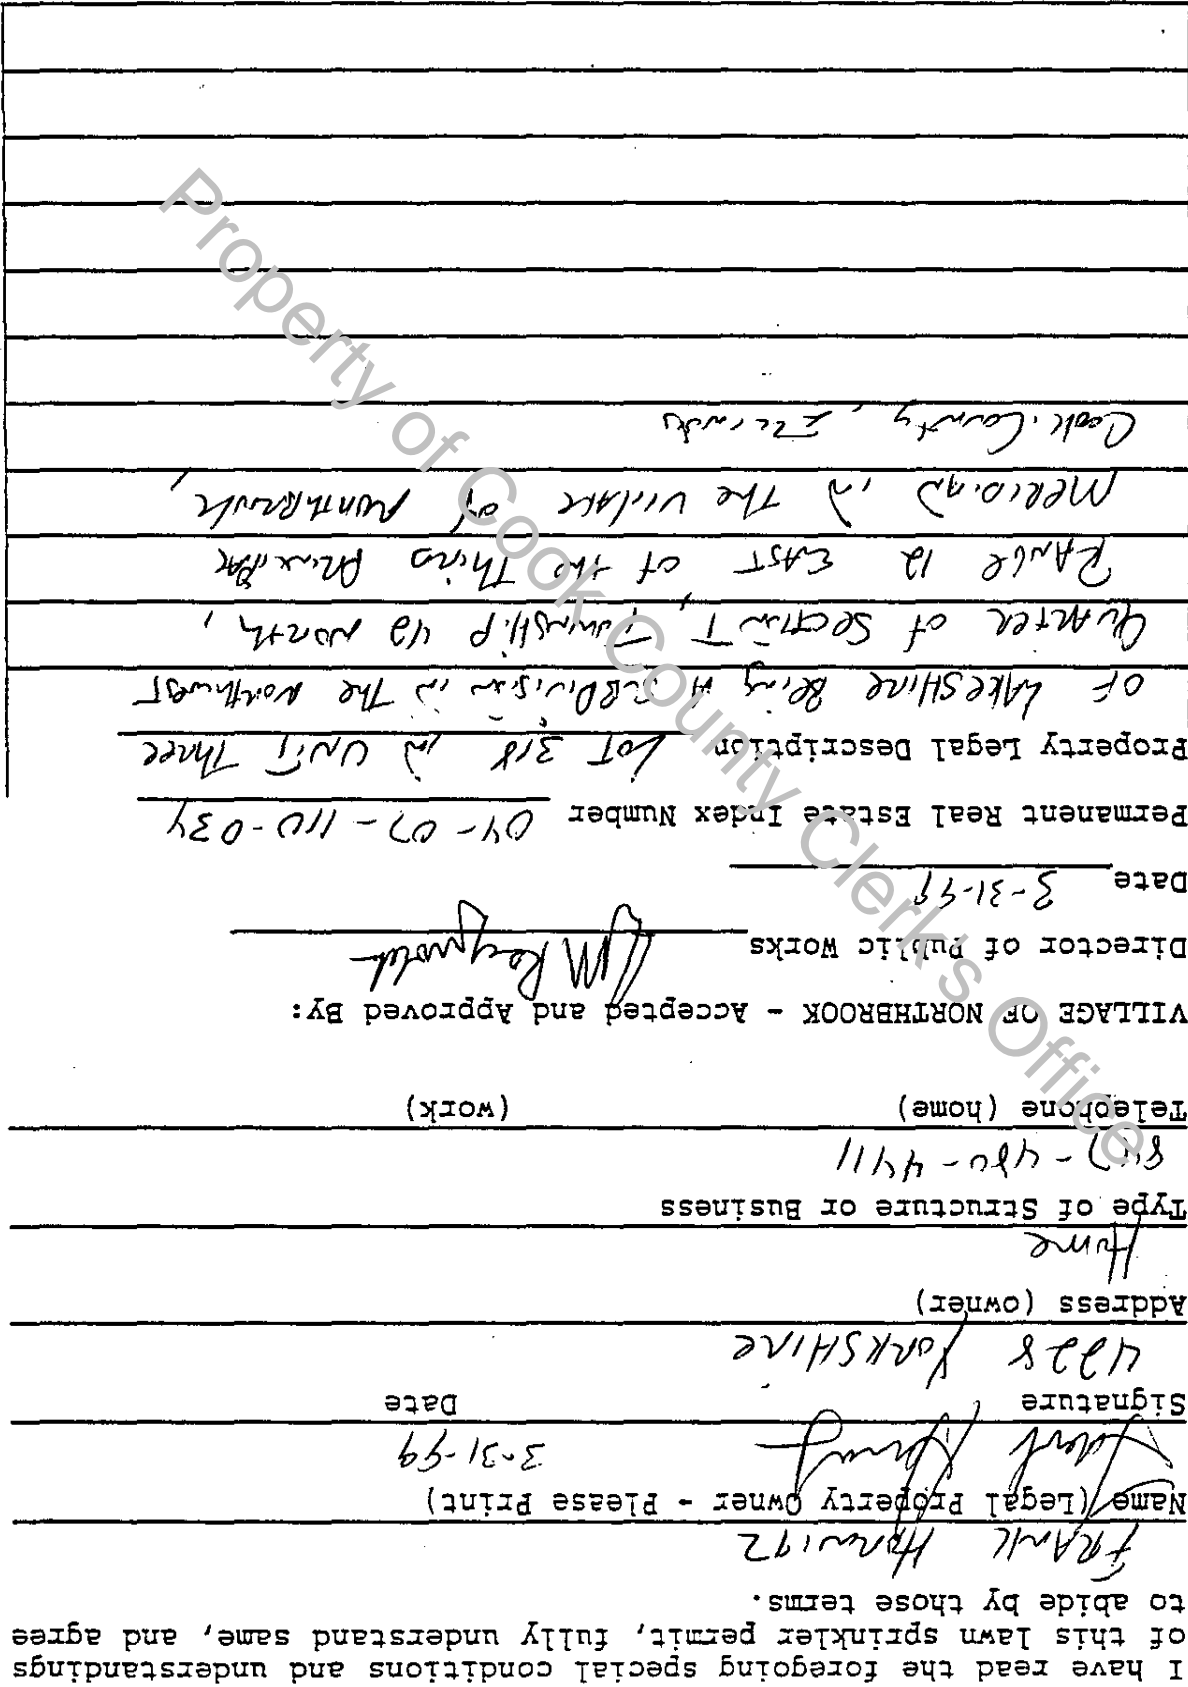 I have read the foregoing special conditions and understandings
of this lawn sprinkler permit, fully understand same, and agree
to abide by those terms.
FRANK Horwitz
Name (Legal Property Owner - Please Print)
3-31-99
Signature Date
4228 YORKSHIRE
Address (owner)
Home
Type of Structure or Business
847-480-4411
Telephone (home) (work)
VILLAGE OF NORTHBROOK - Accepted and Approved By:
Director of Public Works
Date 3-31-99
Permanent Real Estate Index Number 04-07-110-034
Property Legal Description LOT 318 in UNIT Three
OF LAKESHIRE Being A in The Northwest
Quarter of Section 7, Township 42 North,
RANGE 12 EAST of the Third Principal
MERIDIAN in The Village of Northbrook,
Cook County, Illinois
Property of Cook County Clerk's Office